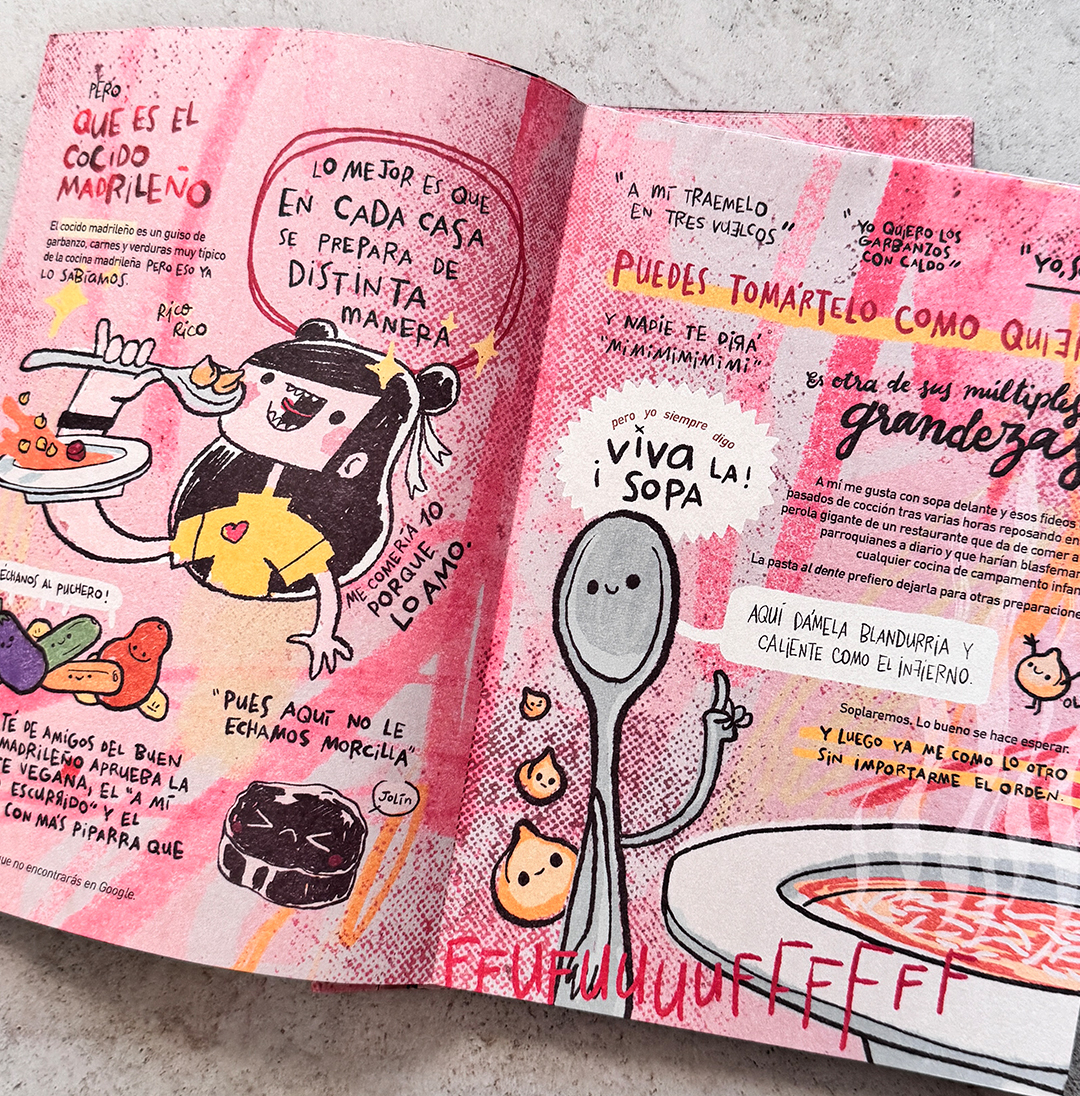 PERO
QUÉ ES EL
COCIDO
MADRILEÑO
El cocido madrileño es un guiso de
garbanzo, carnes y verduras muy típico
de la cocina madrileña PERO ESO YA
LO SABÍAMOS.
RICO
RICO
LO MEJOR ES QUE
EN CADA CASA
SE PREPARA DE
DISTINTA
MANERA
ME COMERÍA 10
PORQUE
LO AMO.
ÉCHANOS AL PUCHERO!
"PUES AQUÍ NO LE
ECHAMOS MORCILLA"
JOLÍN
TÉ DE AMIGOS DEL BUEN
MADRILEÑO APRUEBA LA
VEGANA, EL "A MÍ
ESCURRIDO" Y EL
CON MÁS PIPARRA QUE
que no encontrarás en Google.
"A MÍ TRAEMELO
EN TRES VUELCOS"
"YO QUIERO LOS
GARBANZOS
CON CALDO"
"YO, S
PUEDES TOMÁRTELO COMO
Y NADIE TE DIRÁ
"MIMIMIMIMIMI"
Es otra de sus múltiples
grandezas
pero yo siempre digo
¡VIVA LA!
SOPA
A mí me gusta con sopa delante y esos fideos
pasados de cocción tras varias horas reposando en
perola gigante de un restaurante que da de comer a
parroquianes a diario y que harían blasfemar
cualquier cocina de campamento
La pasta al dente prefiero dejarla para otras
AQUÍ DÁMELA BLANDURRIA Y
CALIENTE COMO EL INFIERNO.
Soplaremos, Lo bueno se hace esperar.
Y LUEGO YA ME COMO LO OTRO
SIN IMPORTARME EL ORDEN.
FFUFUUUUFFFFFF